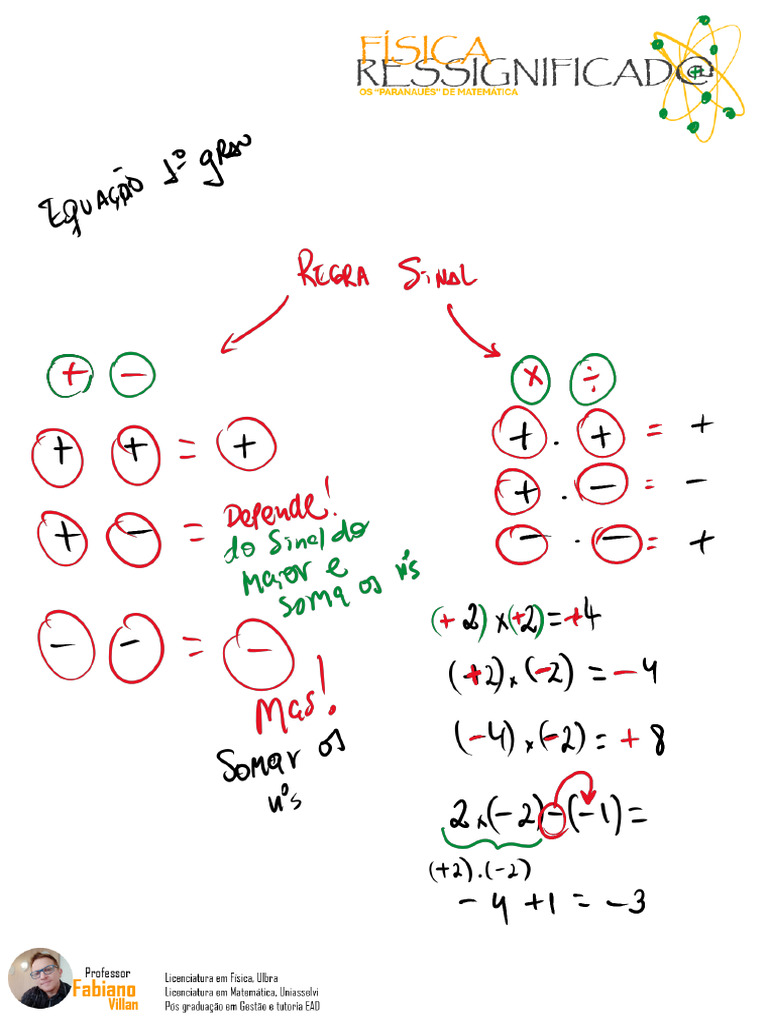 FÍSICA
RESSIGNIFICAD@
OS "PARANAUÊS" DE MATEMÁTICA
EQUAÇÃO 1º GRAU
REGRA SINAL
+ -
+ + = +
+ - = Depende!
do Sinal do
Maior e
Soma os nºs
- - = -
Mas!
Somar os
nºs
× ÷
+ . + = +
+ . - = -
- . - = +
(+2)×(+2)=+4
(+2)×(-2)=-4
(-4)×(-2)=+8
2×(-2)-(-1)=
(+2).(-2)
-4+1=-3
Professor
Fabiano
Villan
Licenciatura em Física, Ulbra
Licenciatura em Matemática, Uniasselvi
Pós graduação em Gestão e tutoria EAD